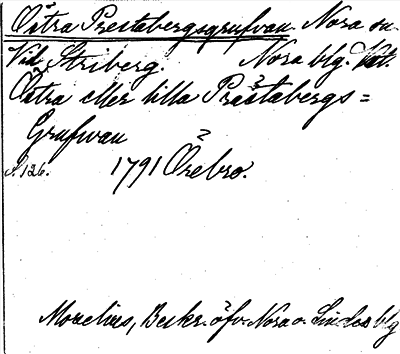 Östra Prestabergsgrufvan Nora sn
Vid Striberg. Nora blg.
Östra eller lilla Prästabergs=
Grufvan
s. 126. 1791 Örebro.
Morelius, Beskr. öfv. Nora o. Lindes blg